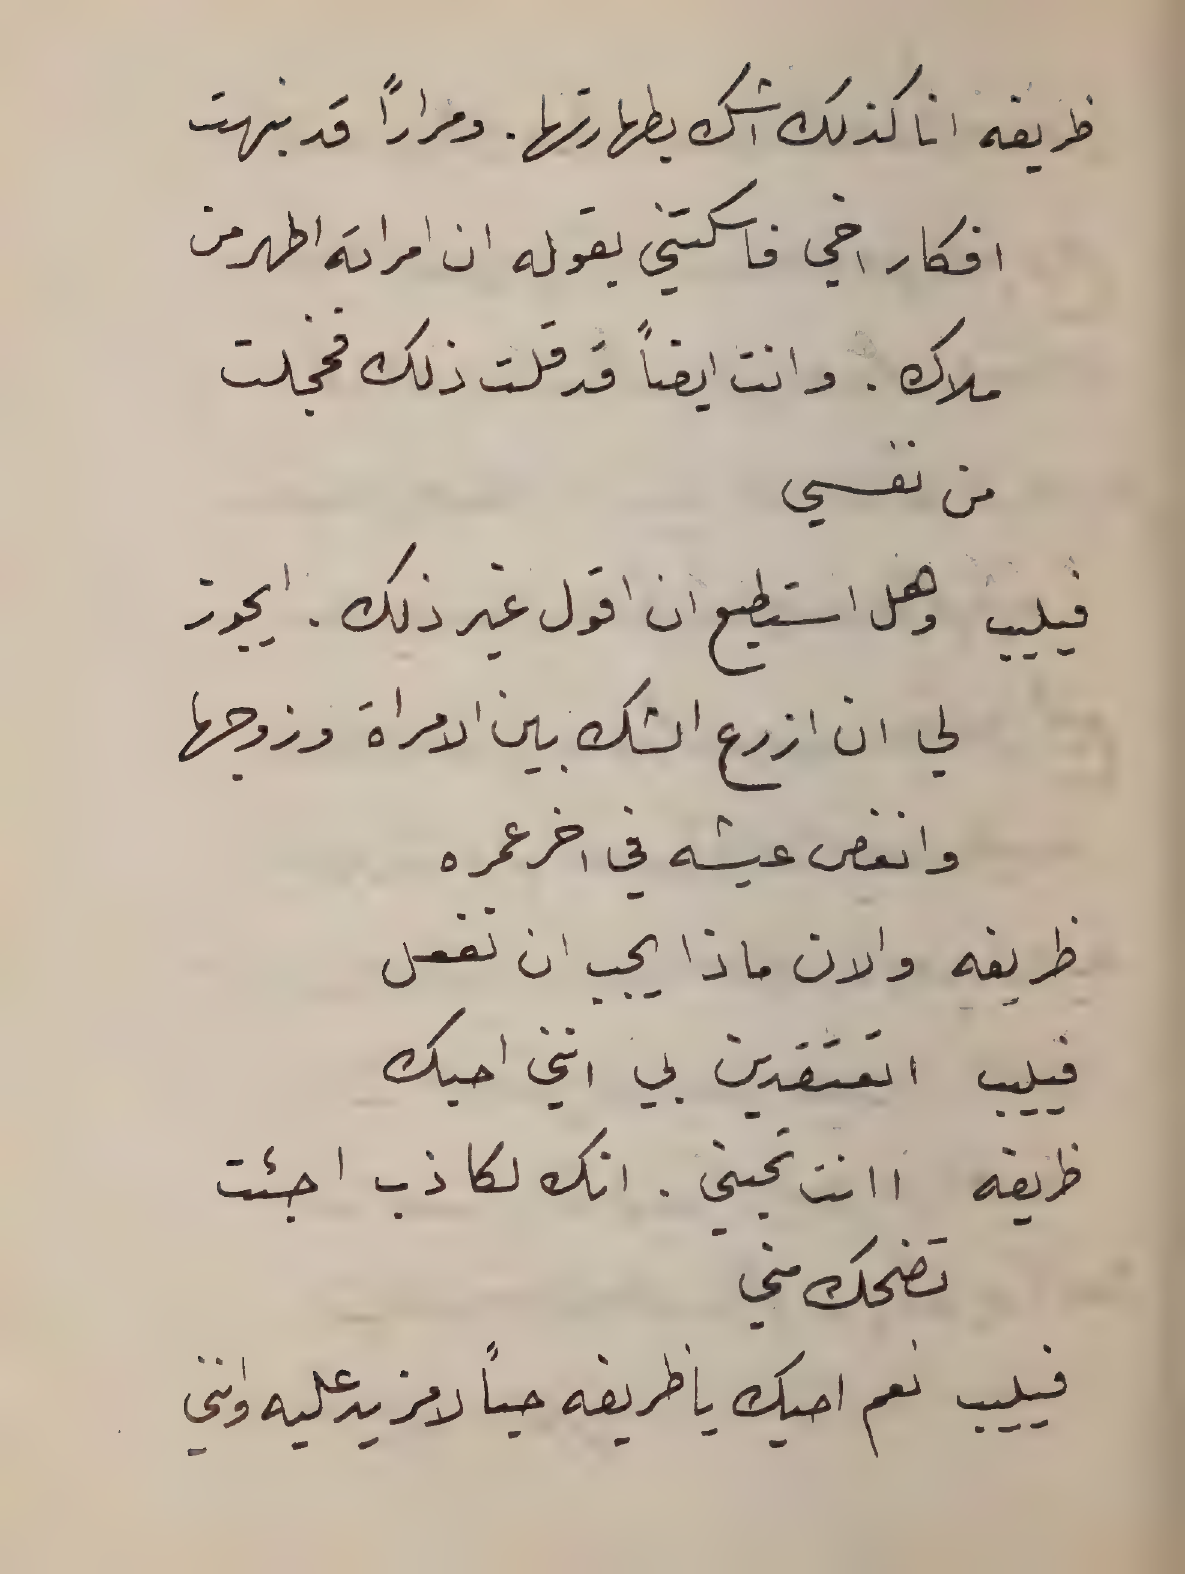 ظريفه انا كذلك اشك بطهارتها. ومرارًا قد نبهت
افكار اخي فاسكتني بقوله ان امراته اطهر من
ملاك. وانت ايضاً قد قلت ذلك فخجلت
من نفسي
فيليب وهل استطيع ان اقول غير ذلك. ايجوز
لي ان ازرع الشك بين الامراة وزوجها
وانغص عيشه في اخر عمره
ظريفه والان ماذا يجب ان تفعل
فيليب اتعتقدين بي انني احبك
ظريفه اانت تحبني. انك لكاذب اجئت
تضحك مني
فيليب نعم احبك يا ظريفه حباً لا مزيد عليه وانني